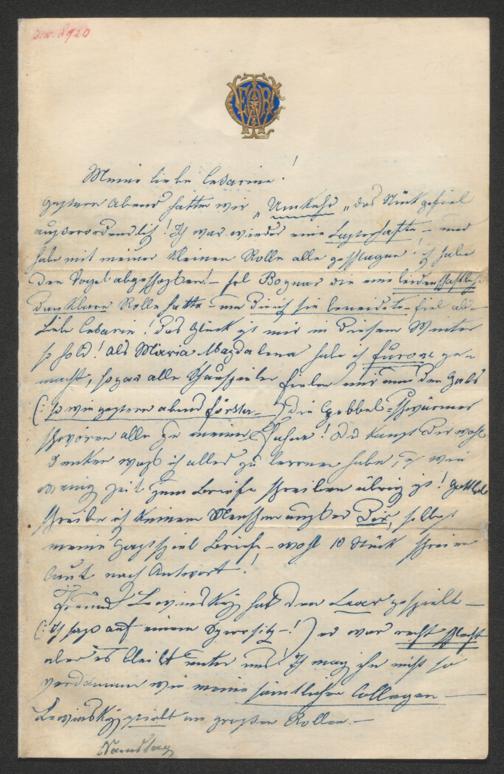 Meine liebe Cesarine!
gestern Abend hatten wir „Umkehr“ das Stück gefiel
außerordentlich! Ich war wieder eine Lasterhafte – und
habe mit meiner kleinen Rolle alle geschlagen. Ich habe
den Vogel abgeschossen! – Frl Bognar die eine leidenschaftliche
dankbare Rolle hatte – und die ich sie beneidete – fiel ab –
Liebe Cesarine! das Glück ist mir in diesem Winter
so hold! Als Maria Magdalena habe ich Furore ge-
macht, sogar alle Schauspieler fielen mir um den Hals
(: so wie gestern abend Förster –) die Hebbel-Schwärmer
schworen alle zu meiner Fahne! Du kannst Dir wohl
denken was ich alles zu lernen habe, u wie
wenig Zeit zum Briefe schreiben übrig ist! Gottlob
schreibe ich keinem Menschen außer Dir, selbst
meine Gastspiel Briefe – wohl 10 Stück schreien
laut nach Antwort!
Freund Lewinsky hat den Lear gespielt –
(: Ich saß auf einem Sperrsitz –!) es war recht schlecht
aber es bleibt unter uns! Ich mag ihn nicht so
verdammen wie meine sämtlichen Collegen –
Lewinsky in großen Rollen –